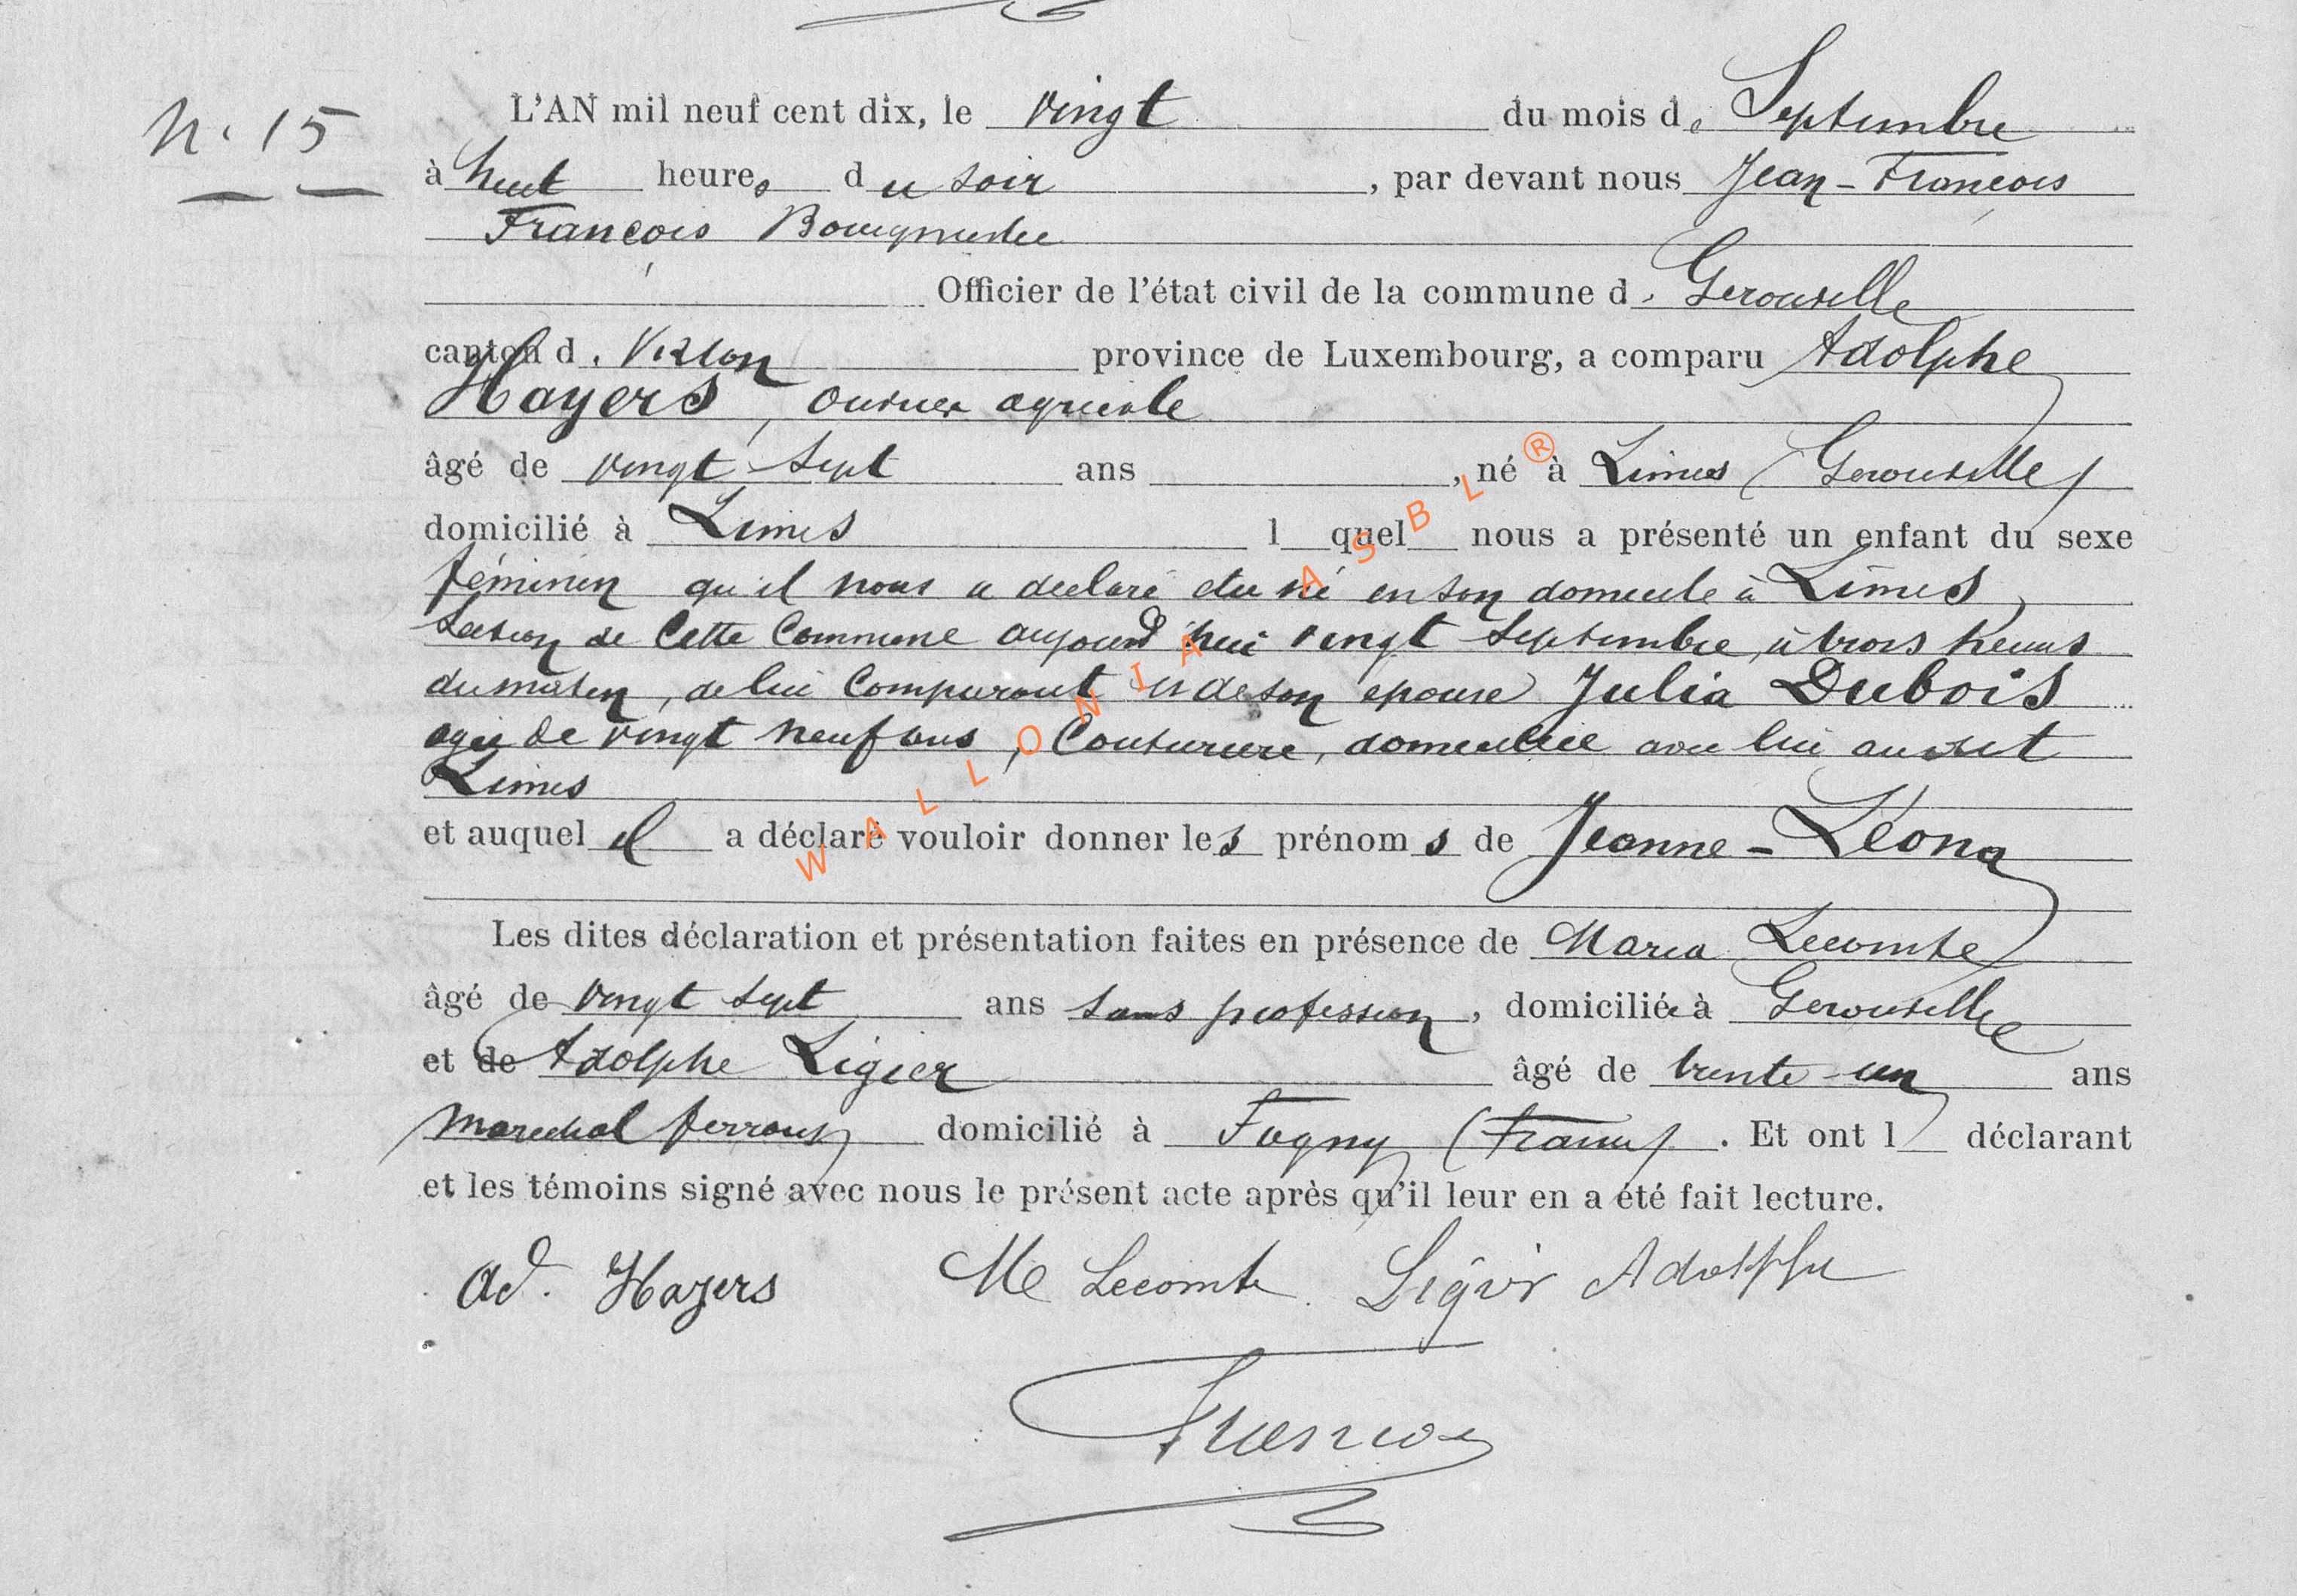 N. 15
L'AN mil neuf cent dix, le vingt du mois de Septembre
à huit heures du soir, par devant nous Jean-François
François Bourgmestre
Officier de l'état civil de la commune de Gerouville
canton de Virton province de Luxembourg, a comparu Adolphe
Hayers, ouvrier agricole
âgé de vingt sept ans, né à Limes (Gerouville)
domicilié à Limes l quel nous a présenté un enfant du sexe
féminin qu'il nous a declaré etre né en son domicile à Limes,
Section de cette Commune aujourd'hui vingt Septembre, à trois heures
du matin, de lui Comparant et de son epouse Julia Dubois
agée de vingt neuf ans, Couturiere, domiciliée avec lui audit
Limes
et auquel il a déclaré vouloir donner les prénoms de Jeanne-Léona
Les dites déclaration et présentation faites en présence de Maria Lecomte
âgé de vingt sept ans sans profession, domiciliée à Gerouville
et de Adolphe Ligier âgé de trente-un ans
marechal ferrant domicilié à Fagny (France). Et ont l déclarant
et les témoins signé avec nous le présent acte après qu'il leur en a été fait lecture.
Ad. Hayers Me Lecomte. Ligier Adolphe
WALLONIA ASBL ®